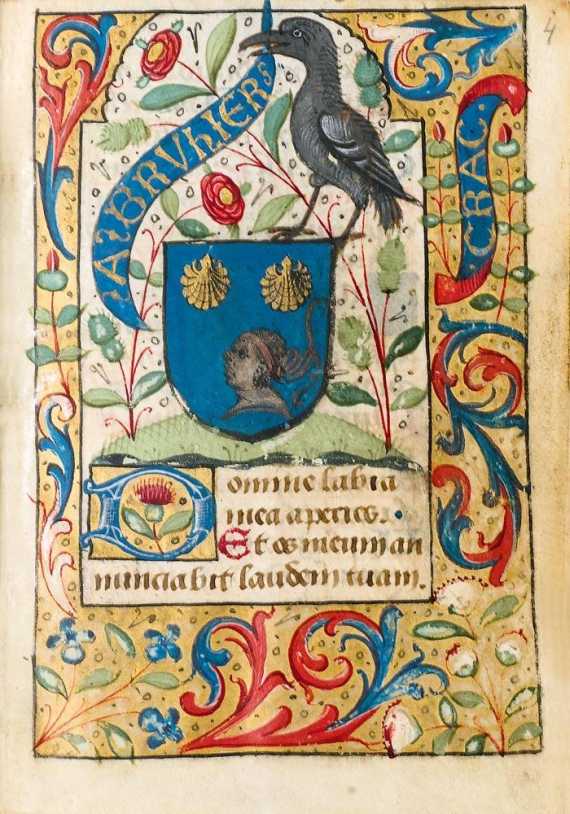 4
CRAC.
Domine labia
mea aperies.
Et os meum an
nunciabit laudem tuam.